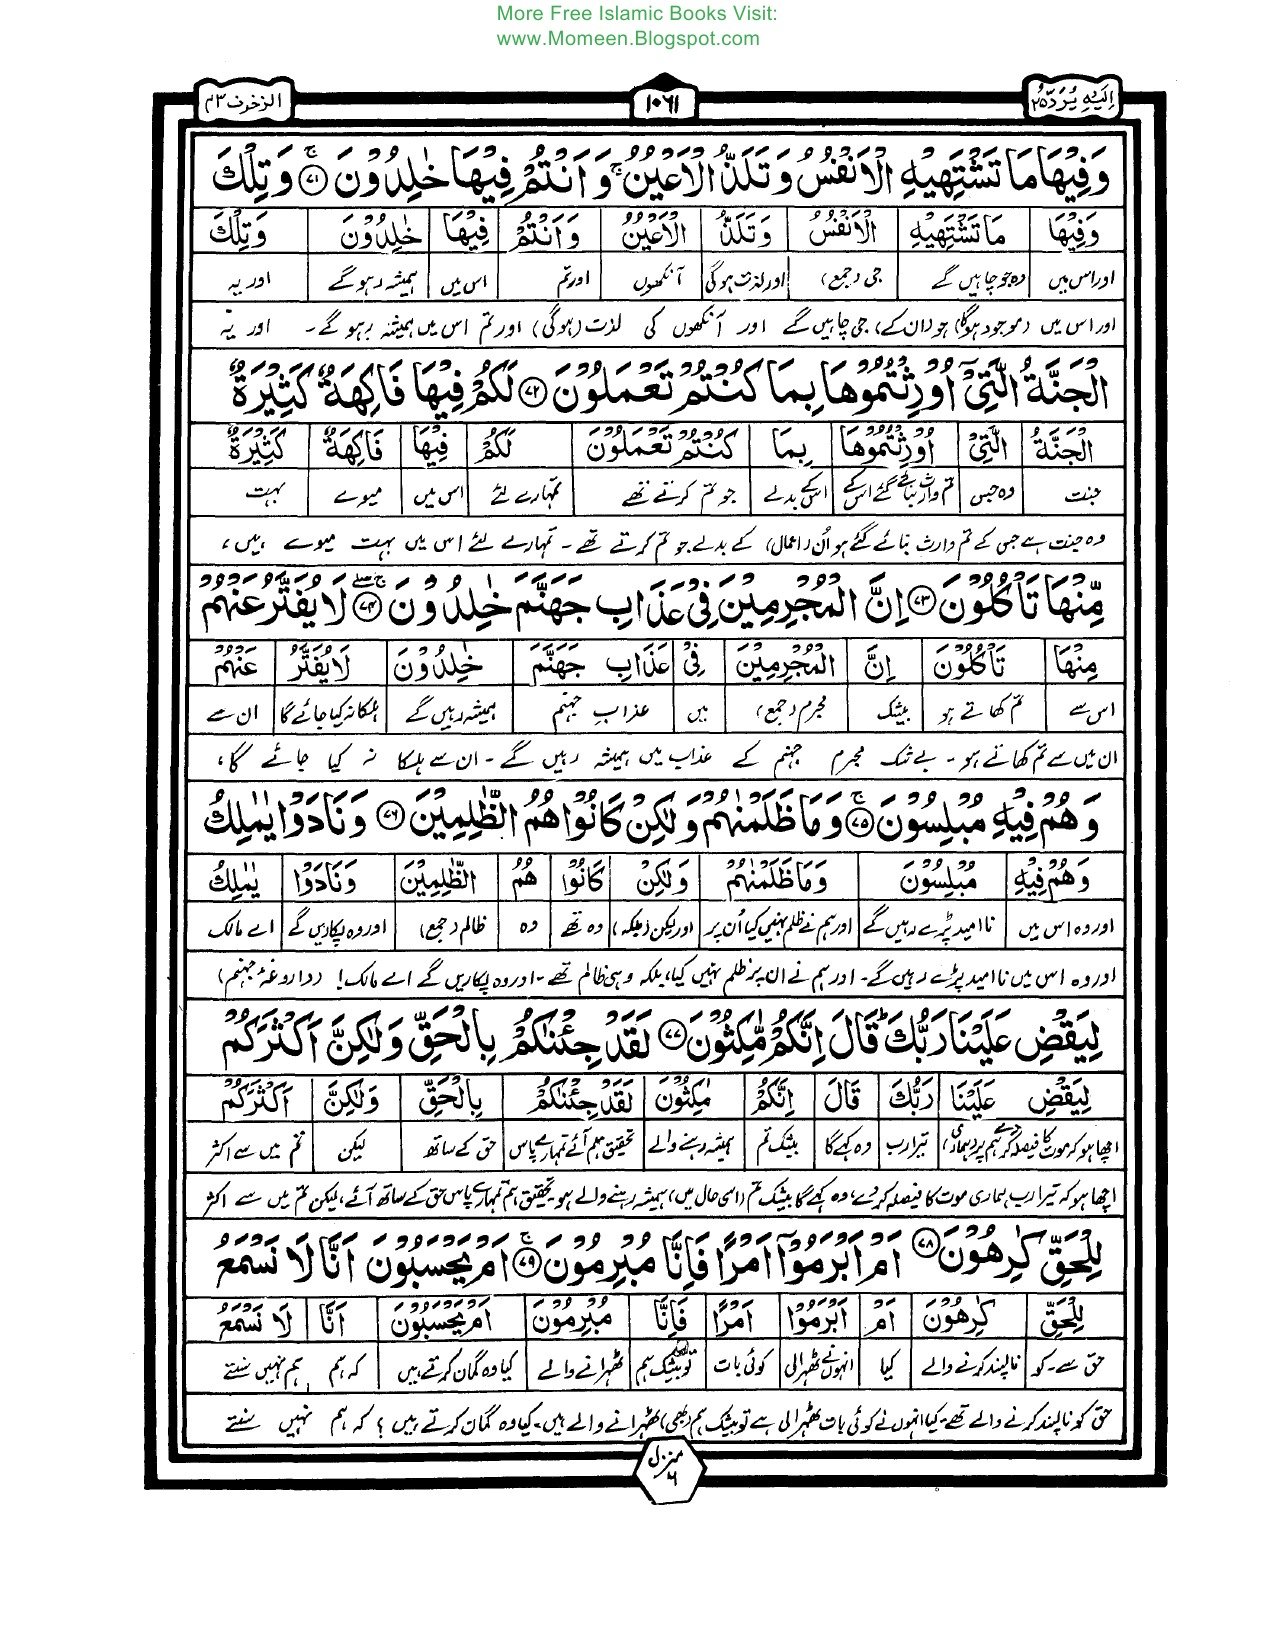 More Free Islamic Books Visit:
www.Momeen.Blogspot.com
اِلَیْهِ یُرَدُّ ۲۵
۱۰۶۱
الزخرف ۴۳
وَفِيْهَا مَا تَشْتَهِيْهِ الْاَنْفُسُ وَتَلَذُّ الْاَعْيُنُ ۚ وَاَنْتُمْ فِيْهَا خٰلِدُوْنَ ۚ ﴿۷۱﴾ وَتِلْكَ
وَفِيْهَا مَا تَشْتَهِيْهِ الْاَنْفُسُ وَتَلَذُّ الْاَعْيُنُ وَاَنْتُمْ فِيْهَا خٰلِدُوْنَ وَتِلْكَ
اور اس میں وہ جو چاہیں گے جی (جمع) اور لذت ہوگی آنکھوں اور تم اس میں ہمیشہ رہو گے اور یہ
اور اس میں (موجود ہوگا) جو (ان کے) جی چاہیں گے اور آنکھوں کی لذت (ہوگی) اور تم اس میں ہمیشہ رہو گے۔ اور یہ
الْجَنَّةُ الَّتِيْٓ اُوْرِثْتُمُوْهَا بِمَا كُنْتُمْ تَعْمَلُوْنَ ﴿۷۲﴾ لَكُمْ فِيْهَا فَاكِهَةٌ كَثِيْرَةٌ
الْجَنَّةُ الَّتِيْ اُوْرِثْتُمُوْهَا بِمَا كُنْتُمْ تَعْمَلُوْنَ لَكُمْ فِيْهَا فَاكِهَةٌ كَثِيْرَةٌ
جنت وہ جس تم وارث بنائے گئے اس کے اس کے بدلے جو تم کرتے تھے تمہارے لئے اس میں میوے بہت
وہ جنت ہے جس کے تم وارث بنائے گئے ہو اُن (اعمال) کے بدلے جو تم کرتے تھے۔ تمہارے لئے اس میں بہت میوے ہیں،
مِّنْهَا تَاْكُلُوْنَ ﴿۷۳﴾ اِنَّ الْمُجْرِمِيْنَ فِيْ عَذَابِ جَهَنَّمَ خٰلِدُوْنَ ﴿۷۴﴾ لَا يُفَتَّرُ عَنْهُمْ
مِنْهَا تَاْكُلُوْنَ اِنَّ الْمُجْرِمِيْنَ فِيْ عَذَابِ جَهَنَّمَ خٰلِدُوْنَ لَا يُفَتَّرُ عَنْهُمْ
اس سے تم کھاتے ہو بیشک مجرم (جمع) میں عذاب جہنم ہمیشہ رہیں گے ہلکا نہ کیا جائے گا ان سے
ان میں سے تم کھاتے ہو۔ بے شک مجرم جہنم کے عذاب میں ہمیشہ رہیں گے۔ ان سے ہلکا نہ کیا جائے گا،
وَهُمْ فِيْهِ مُبْلِسُوْنَ ۚ ﴿۷۵﴾ وَمَا ظَلَمْنٰهُمْ وَلٰكِنْ كَانُوْا هُمُ الظّٰلِمِيْنَ ﴿۷۶﴾ وَنَادَوْا يٰمٰلِكُ
وَهُمْ فِيْهِ مُبْلِسُوْنَ وَمَا ظَلَمْنٰهُمْ وَلٰكِنْ كَانُوْا هُمُ الظّٰلِمِيْنَ وَنَادَوْا يٰمٰلِكُ
اور وہ اس میں ناامید پڑے رہیں گے اور ہم نے ظلم نہیں کیا اُن پر اور لیکن (بلکہ) وہ تھے وہ ظالم (جمع) اور وہ پکاریں گے اے مالک
اور وہ اس میں ناامید پڑے رہیں گے۔ اور ہم نے ان پر ظلم نہیں کیا، بلکہ وہی ظالم تھے۔ اور وہ پکاریں گے اے مالک! (داروغۂ جہنم)
لِيَقْضِ عَلَيْنَا رَبُّكَ ؕ قَالَ اِنَّكُمْ مّٰكِثُوْنَ ﴿۷۷﴾ لَقَدْ جِئْنٰكُمْ بِالْحَقِّ وَلٰكِنَّ اَكْثَرَكُمْ
لِيَقْضِ عَلَيْنَا رَبُّكَ قَالَ اِنَّكُمْ مٰكِثُوْنَ لَقَدْ جِئْنٰكُمْ بِالْحَقِّ وَلٰكِنَّ اَكْثَرَكُمْ
اچھا ہو کہ موت کا فیصلہ کر دے ہم پر (ہماری) تیرا رب وہ کہے گا بیشک تم ہمیشہ رہنے والے تحقیق ہم آئے تمہارے پاس حق کے ساتھ لیکن تم میں سے اکثر
اچھا ہو کہ تیرا رب ہماری موت کا فیصلہ کر دے، وہ کہے گا بیشک تم (اسی حال میں) ہمیشہ رہنے والے ہو۔ تحقیق ہم تمہارے پاس حق کے ساتھ آئے، لیکن تم میں سے اکثر
لِلْحَقِّ كٰرِهُوْنَ ﴿۷۸﴾ اَمْ اَبْرَمُوْٓا اَمْرًا فَاِنَّا مُبْرِمُوْنَ ۚ ﴿۷۹﴾ اَمْ يَحْسَبُوْنَ اَنَّا لَا نَسْمَعُ
لِلْحَقِّ كٰرِهُوْنَ اَمْ اَبْرَمُوْا اَمْرًا فَاِنَّا مُبْرِمُوْنَ اَمْ يَحْسَبُوْنَ اَنَّا لَا نَسْمَعُ
حق سے۔ کو ناپسند کرنے والے کیا انہوں نے ٹھہرالی کوئی بات تو بیشک ہم ٹھہرانے والے کیا وہ گمان کرتے ہیں کہ ہم ہم نہیں سنتے
حق کو ناپسند کرنے والے تھے۔ کیا انہوں نے کوئی بات ٹھہرالی ہے تو بیشک ہم (بھی) ٹھہرانے والے ہیں۔ کیا وہ گمان کرتے ہیں؟ کہ ہم نہیں سنتے
منزل ۶